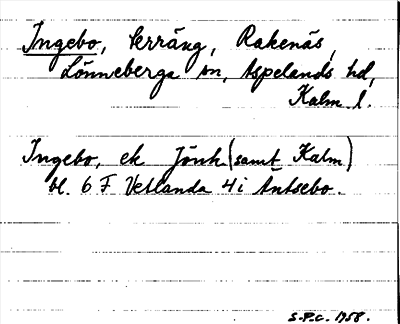 Ingebo, terräng, Rakenäs,
Lönneberga sn, Aspelands hd,
Kalm. l.
Ingebo, ek Jönk (samt Kalm)
bl. 6 F Vetlanda 4 i Äntsebo.
S.P.C. 1958.